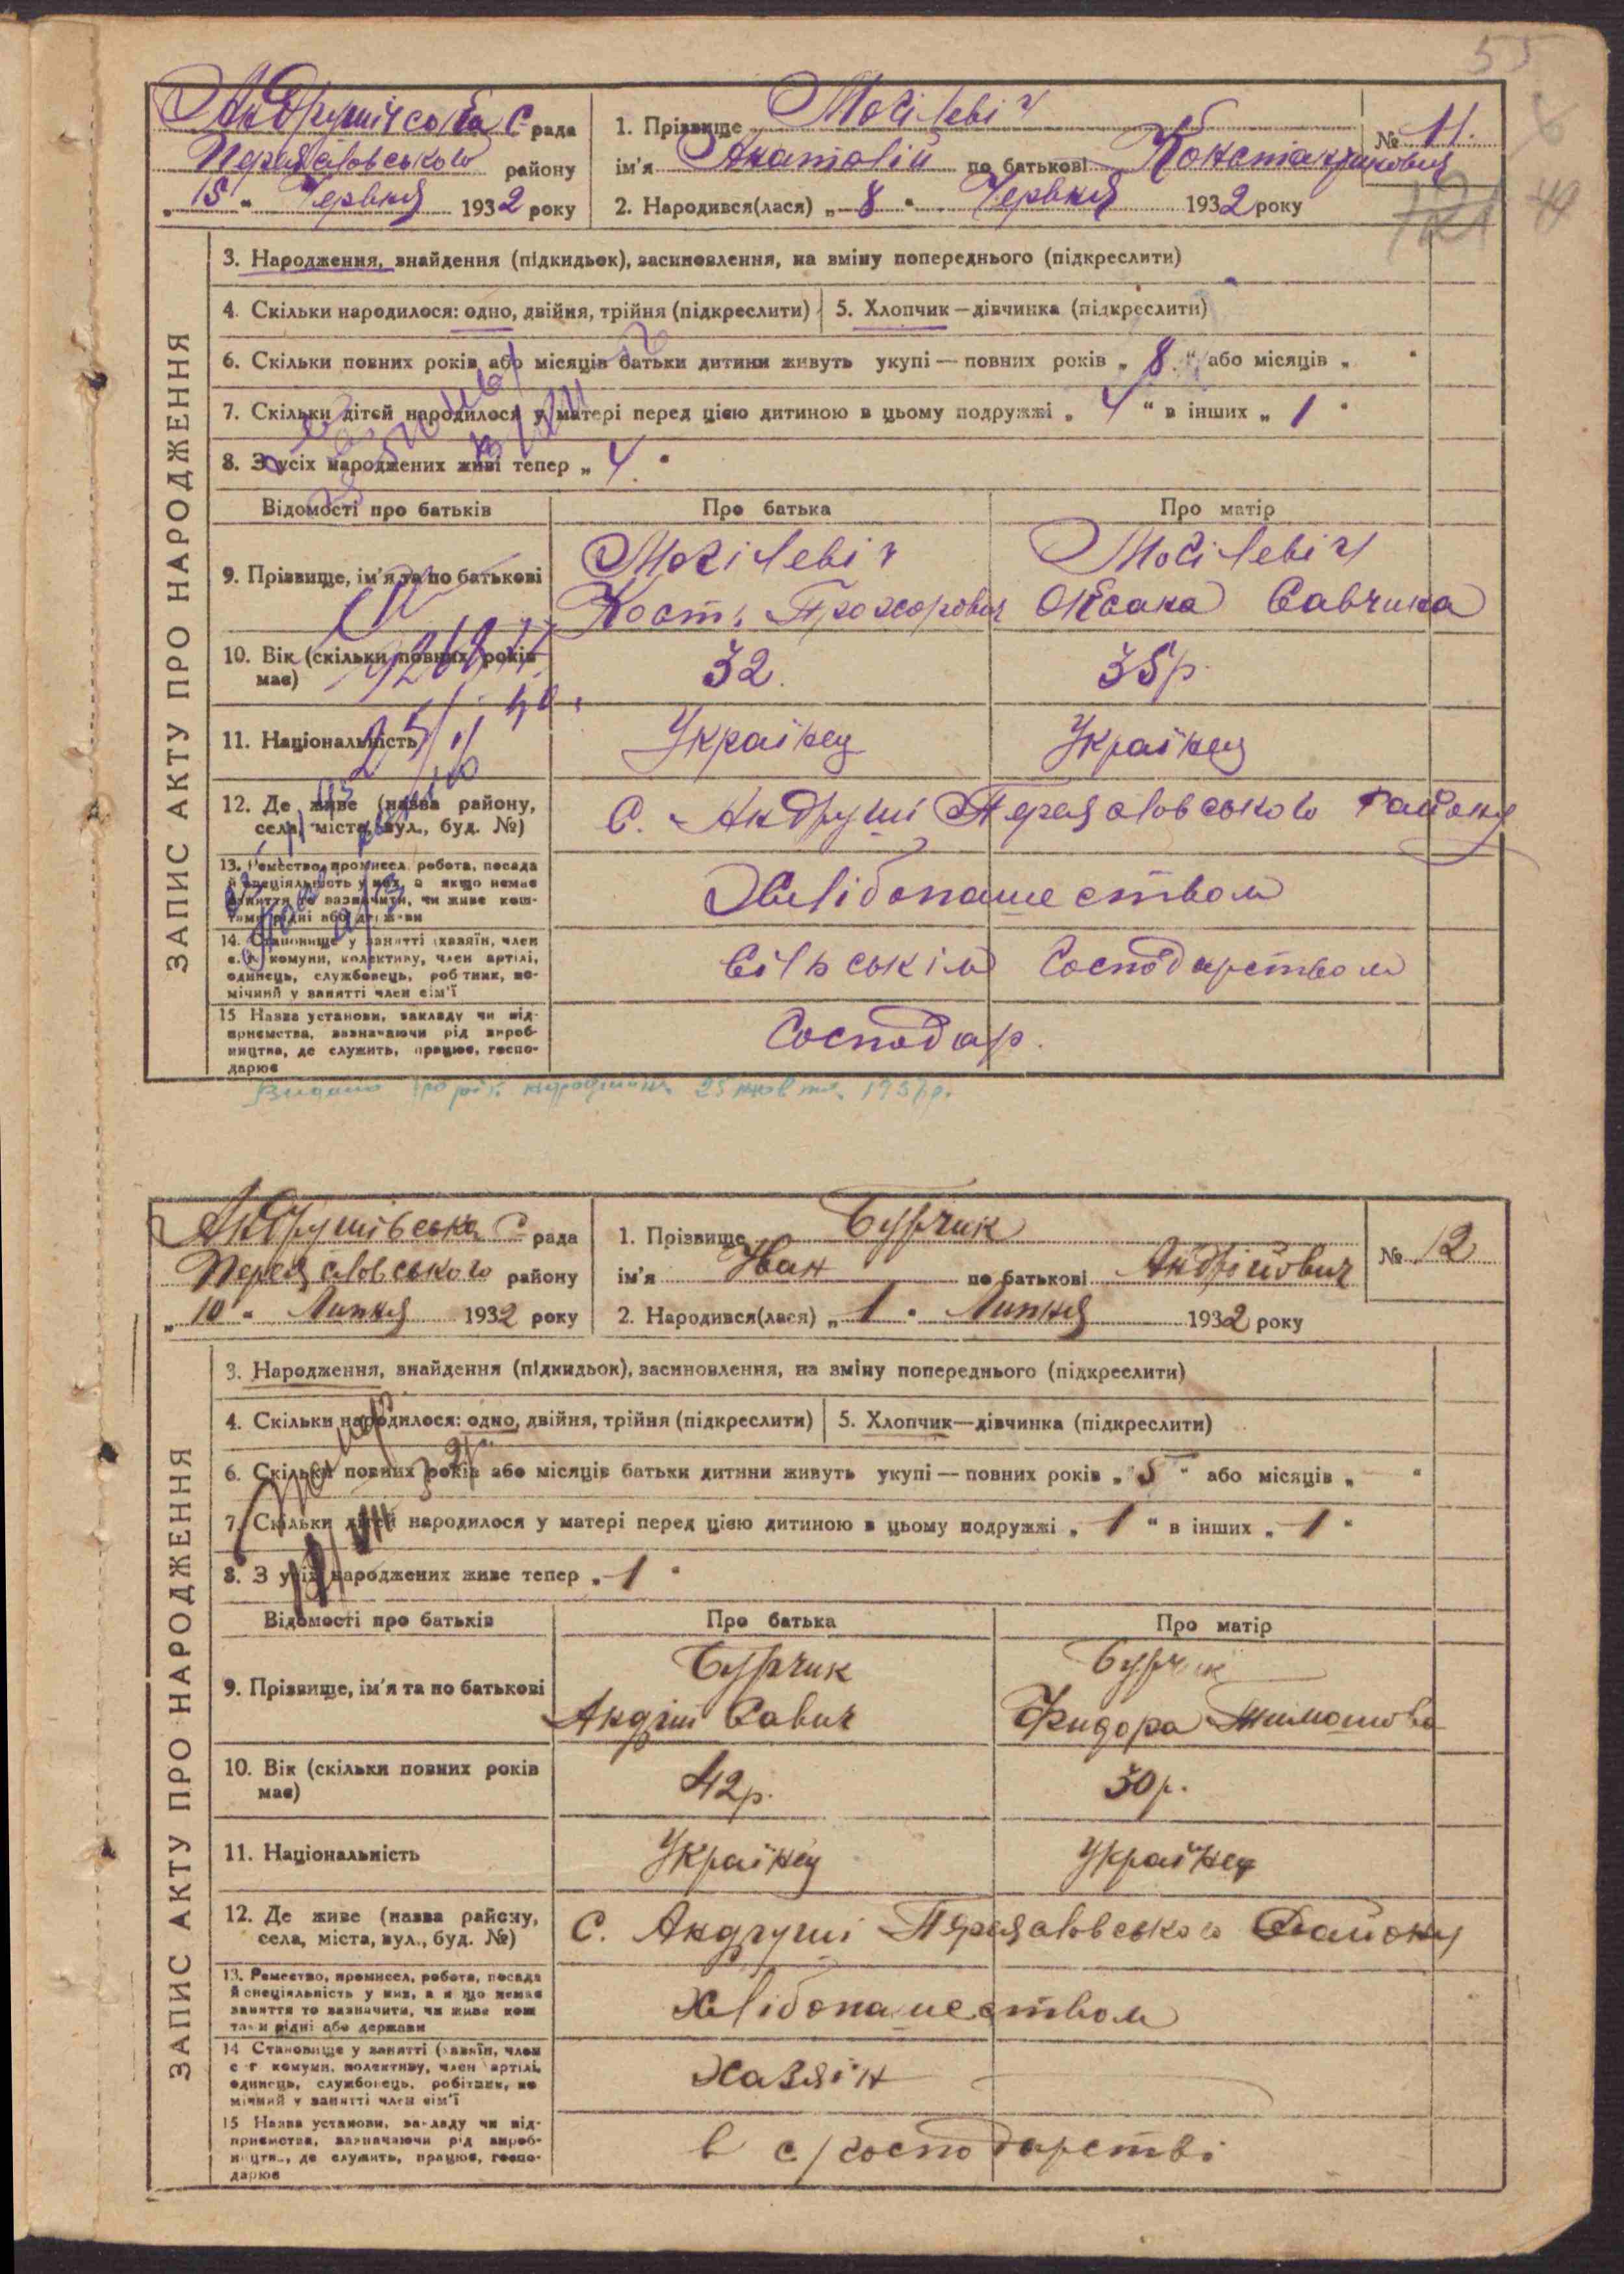 55
Андрушівська С. рада
Переяславського району
„15“ Червня 1932 року
1. Прізвище Могілевіч
№ 11.
ім'я Анатолій по батькові Константинович
2. Народився(лася) „8“ Червня 1932 року
ЗАПИС АКТУ ПРО НАРОДЖЕННЯ
3. Народження, знайдення (підкидьок), засиновлення, на зміну попереднього (підкреслити)
4. Скільки народилося: одно, двійня, трійня (підкреслити)
5. Хлопчик—дівчинка (підкреслити)
6. Скільки повних років або місяців батьки дитини живуть укупі — повних років „8“ або місяців „ “
7. Скільки дітей народилося у матері перед цією дитиною в цьому подружжі „4“ в інших „1“
8. З усіх народжених живі тепер „4“
Відомості про батьків
Про батька
Про матір
9. Прізвище, ім'я та по батькові
Могілевіч
Кост. Прохорович
Могілевіч
Оксана Савчина
10. Вік (скільки повних років має)
32.
35р.
11. Національність
Українец
Українец
12. Де живе (назва району,
села, міста, вул., буд. №)
С. Андруші Переяславського Району
13. Ремество, промисел, робота, посада
й спеціяльність у них, а якщо немає
заняття то зазначити, чи живе кош-
тами рідні або держави
Хлібопашеством
14. Становище у занятті (хазяїн, член
с.-г. комуни, колективу, член артілі,
одинець, службовець, робітник, по-
мічний у занятті член сім'ї
Сільскім Господарством
15 Назва установи, закладу чи під-
приємства, зазначаючи рід вироб-
ництва, де служить, працює, госпо-
дарює
Господар.
Видано про рік народження 25 жовтн. 1937р.
Андрушівська С рада
Переяславського району
„10“ Липня 1932 року
1. Прізвище Бурчик
№ 12
ім'я Иван по батькові Андрійович
2. Народився(лася) „1“ Липня 1932 року
ЗАПИС АКТУ ПРО НАРОДЖЕННЯ
3. Народження, знайдення (підкидьок), засиновлення, на зміну попереднього (підкреслити)
4. Скільки народилося: одно, двійня, трійня (підкреслити)
5. Хлопчик—дівчинка (підкреслити)
6. Скільки повних років або місяців батьки дитини живуть укупі — повних років „5“ або місяців „—“
7. Скільки дітей народилося у матері перед цією дитиною в цьому подружжі „1“ в інших „1“
8. З усіх народжених живе тепер „1“
Відомості про батьків
Про батька
Про матір
9. Прізвище, ім'я та по батькові
Бурчик
Андрій Савич
Бурчик
Фидора Тимошова
10. Вік (скільки повних років має)
42р.
30р.
11. Національність
Українец
Українец
12. Де живе (назва району,
села, міста, вул., буд. №)
С. Андруші Переяславського Району
13. Ремество, промисел, робота, посада
й спеціяльність у них, а якщо немає
заняття то зазначити, чи живе кош
тами рідні або держави
Хлібопашеством
14 Становище у занятті (хазяїн, член
с-г комуни, колективу, член артілі,
одинець, службовець, робітник, по
мічний у занятті член сім'ї
Хазяін
15 Назва установи, закладу чи під-
приємства, зазначаючи рід вироб-
ництва, де служить, працює, госпо-
дарює
в с/господарстві